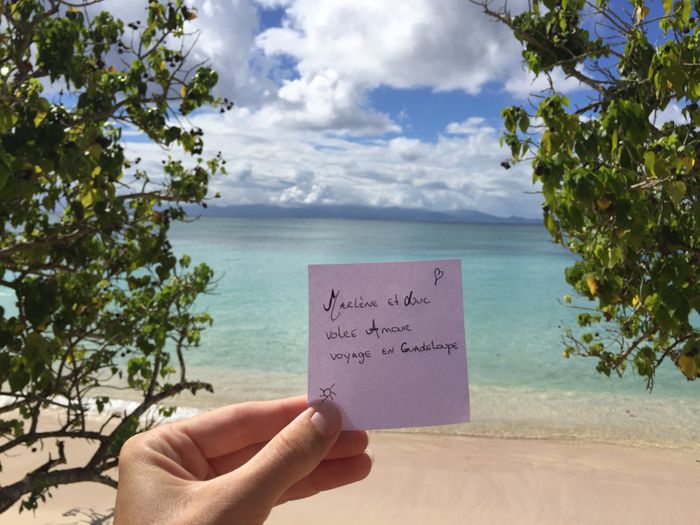 Marlène et Luc
votre Amour
voyage en Guadeloupe